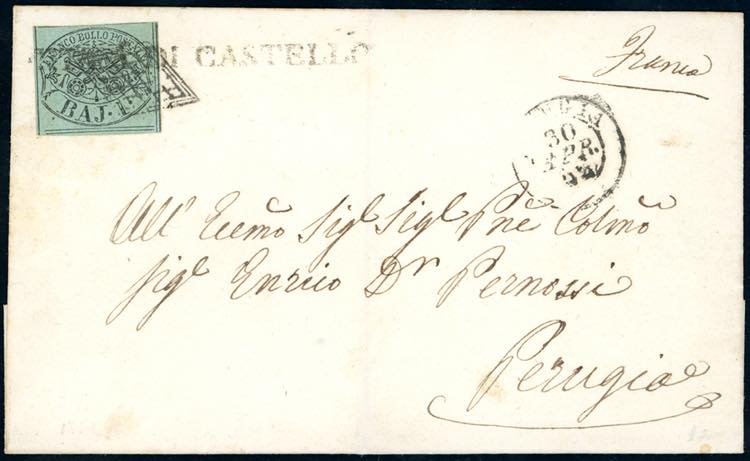 FRANCO BOLLO POSTALE
BAJ. 1
DI CASTELLO
Franca
30
APR.
All' Eccmo Sigl Sigl Pne Colmo
Sigl Enrico Dr Pernossi
Perugia